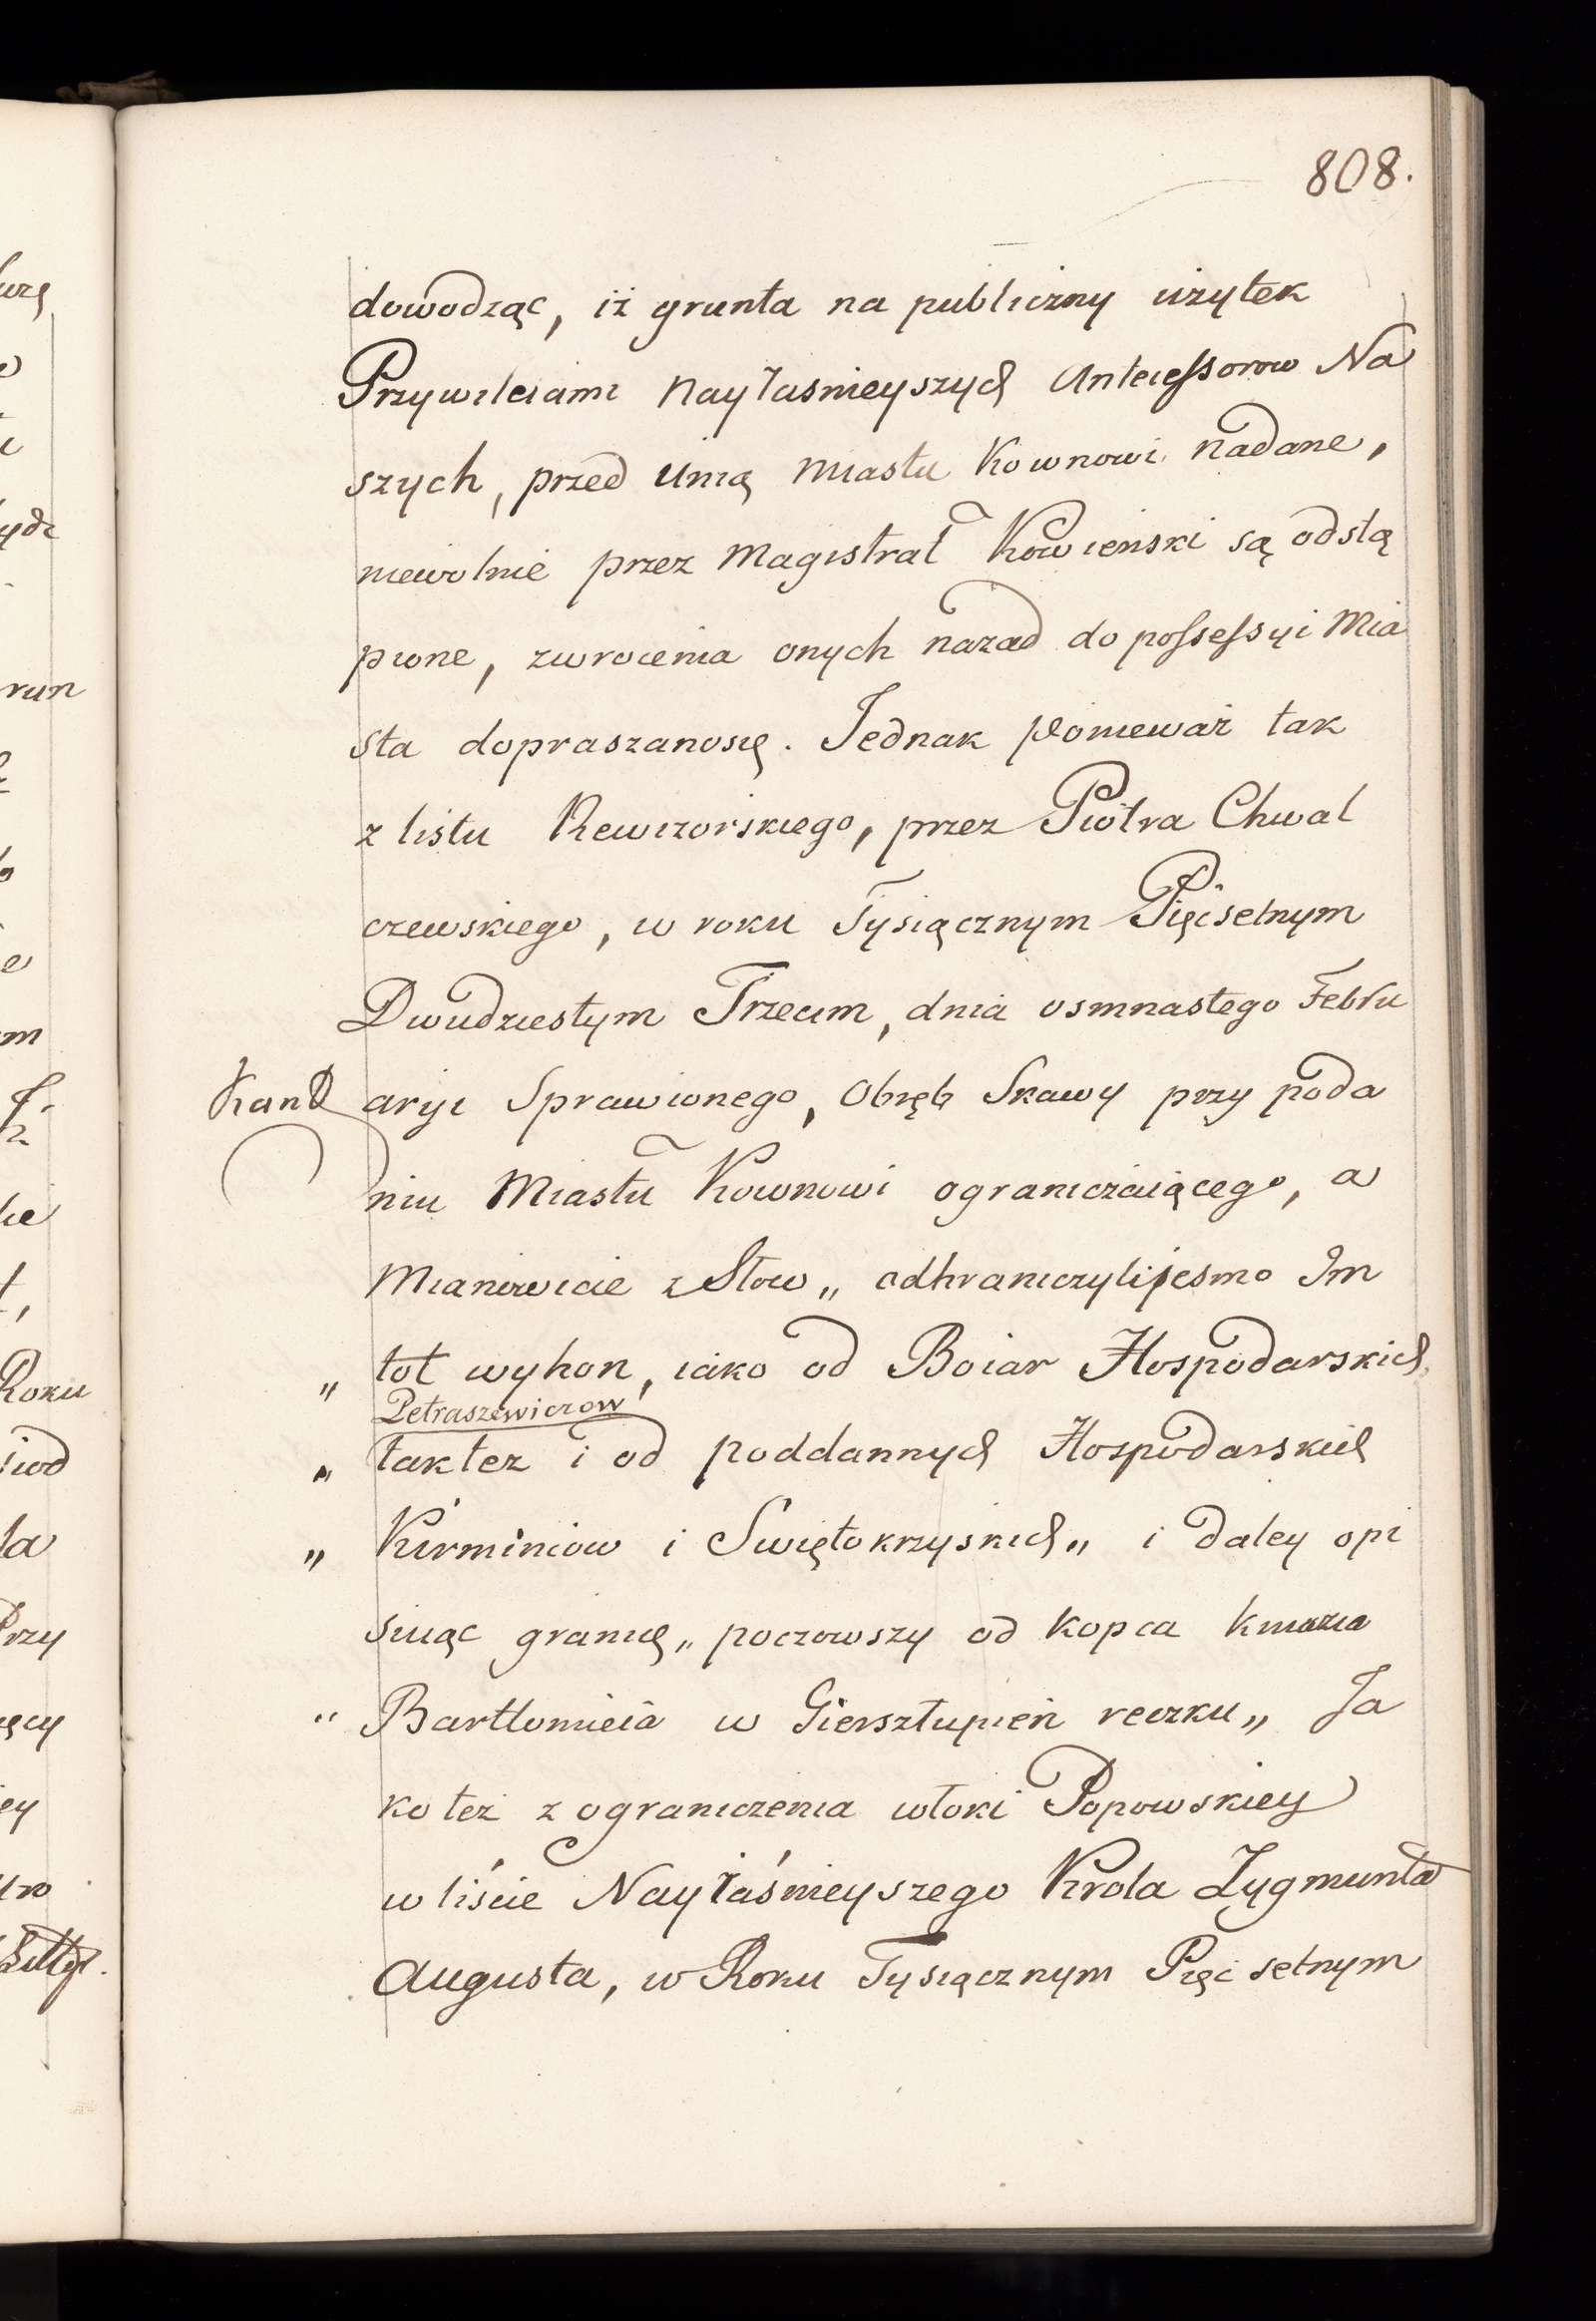 808.
dowodząc, iż grunta na publiczny użytek
Przywileiami Nayiasnieyszych Antecessorow Na
szych, przed Unią Miastu Kownowi nadane,
niewolnie przez Magistrat Kowieński są odstą
pione, zwrocenia onych nazad do possessyi Mia
sta dopraszanosię. Jednak ponieważ tak
z listu Rewizorskiego, przez Piotra Chwal
czewskiego, w roku Tysiącznym Pięcsetnym
Dwudziestym Trzecim, dnia osmnastego Febru
aryi Sprawionego, Obręb Skawy przy poda
niu Miastu Kownowi ograniczaiącego, a
Mianowicie z Słow „ odhraniczylijesmo Im
„ tot wyhon, iako od Boiar Hospodarskich
Petraszewiczow
„ taktez i od poddannych Hospodarskich
„ Kirminiow i Swiętokrzyskich „ i daley opi
siuąc granicę „ poczowszy od Kopca Kniazia
„ Bartłomieia w Giersztupień reczku „ Ja
ko też z ograniczenia włoki Popowskiey
w liście Nayiaśnieyszego Krola Zygmunta
Augusta, w Roku Tysiącznym Pięć setnym